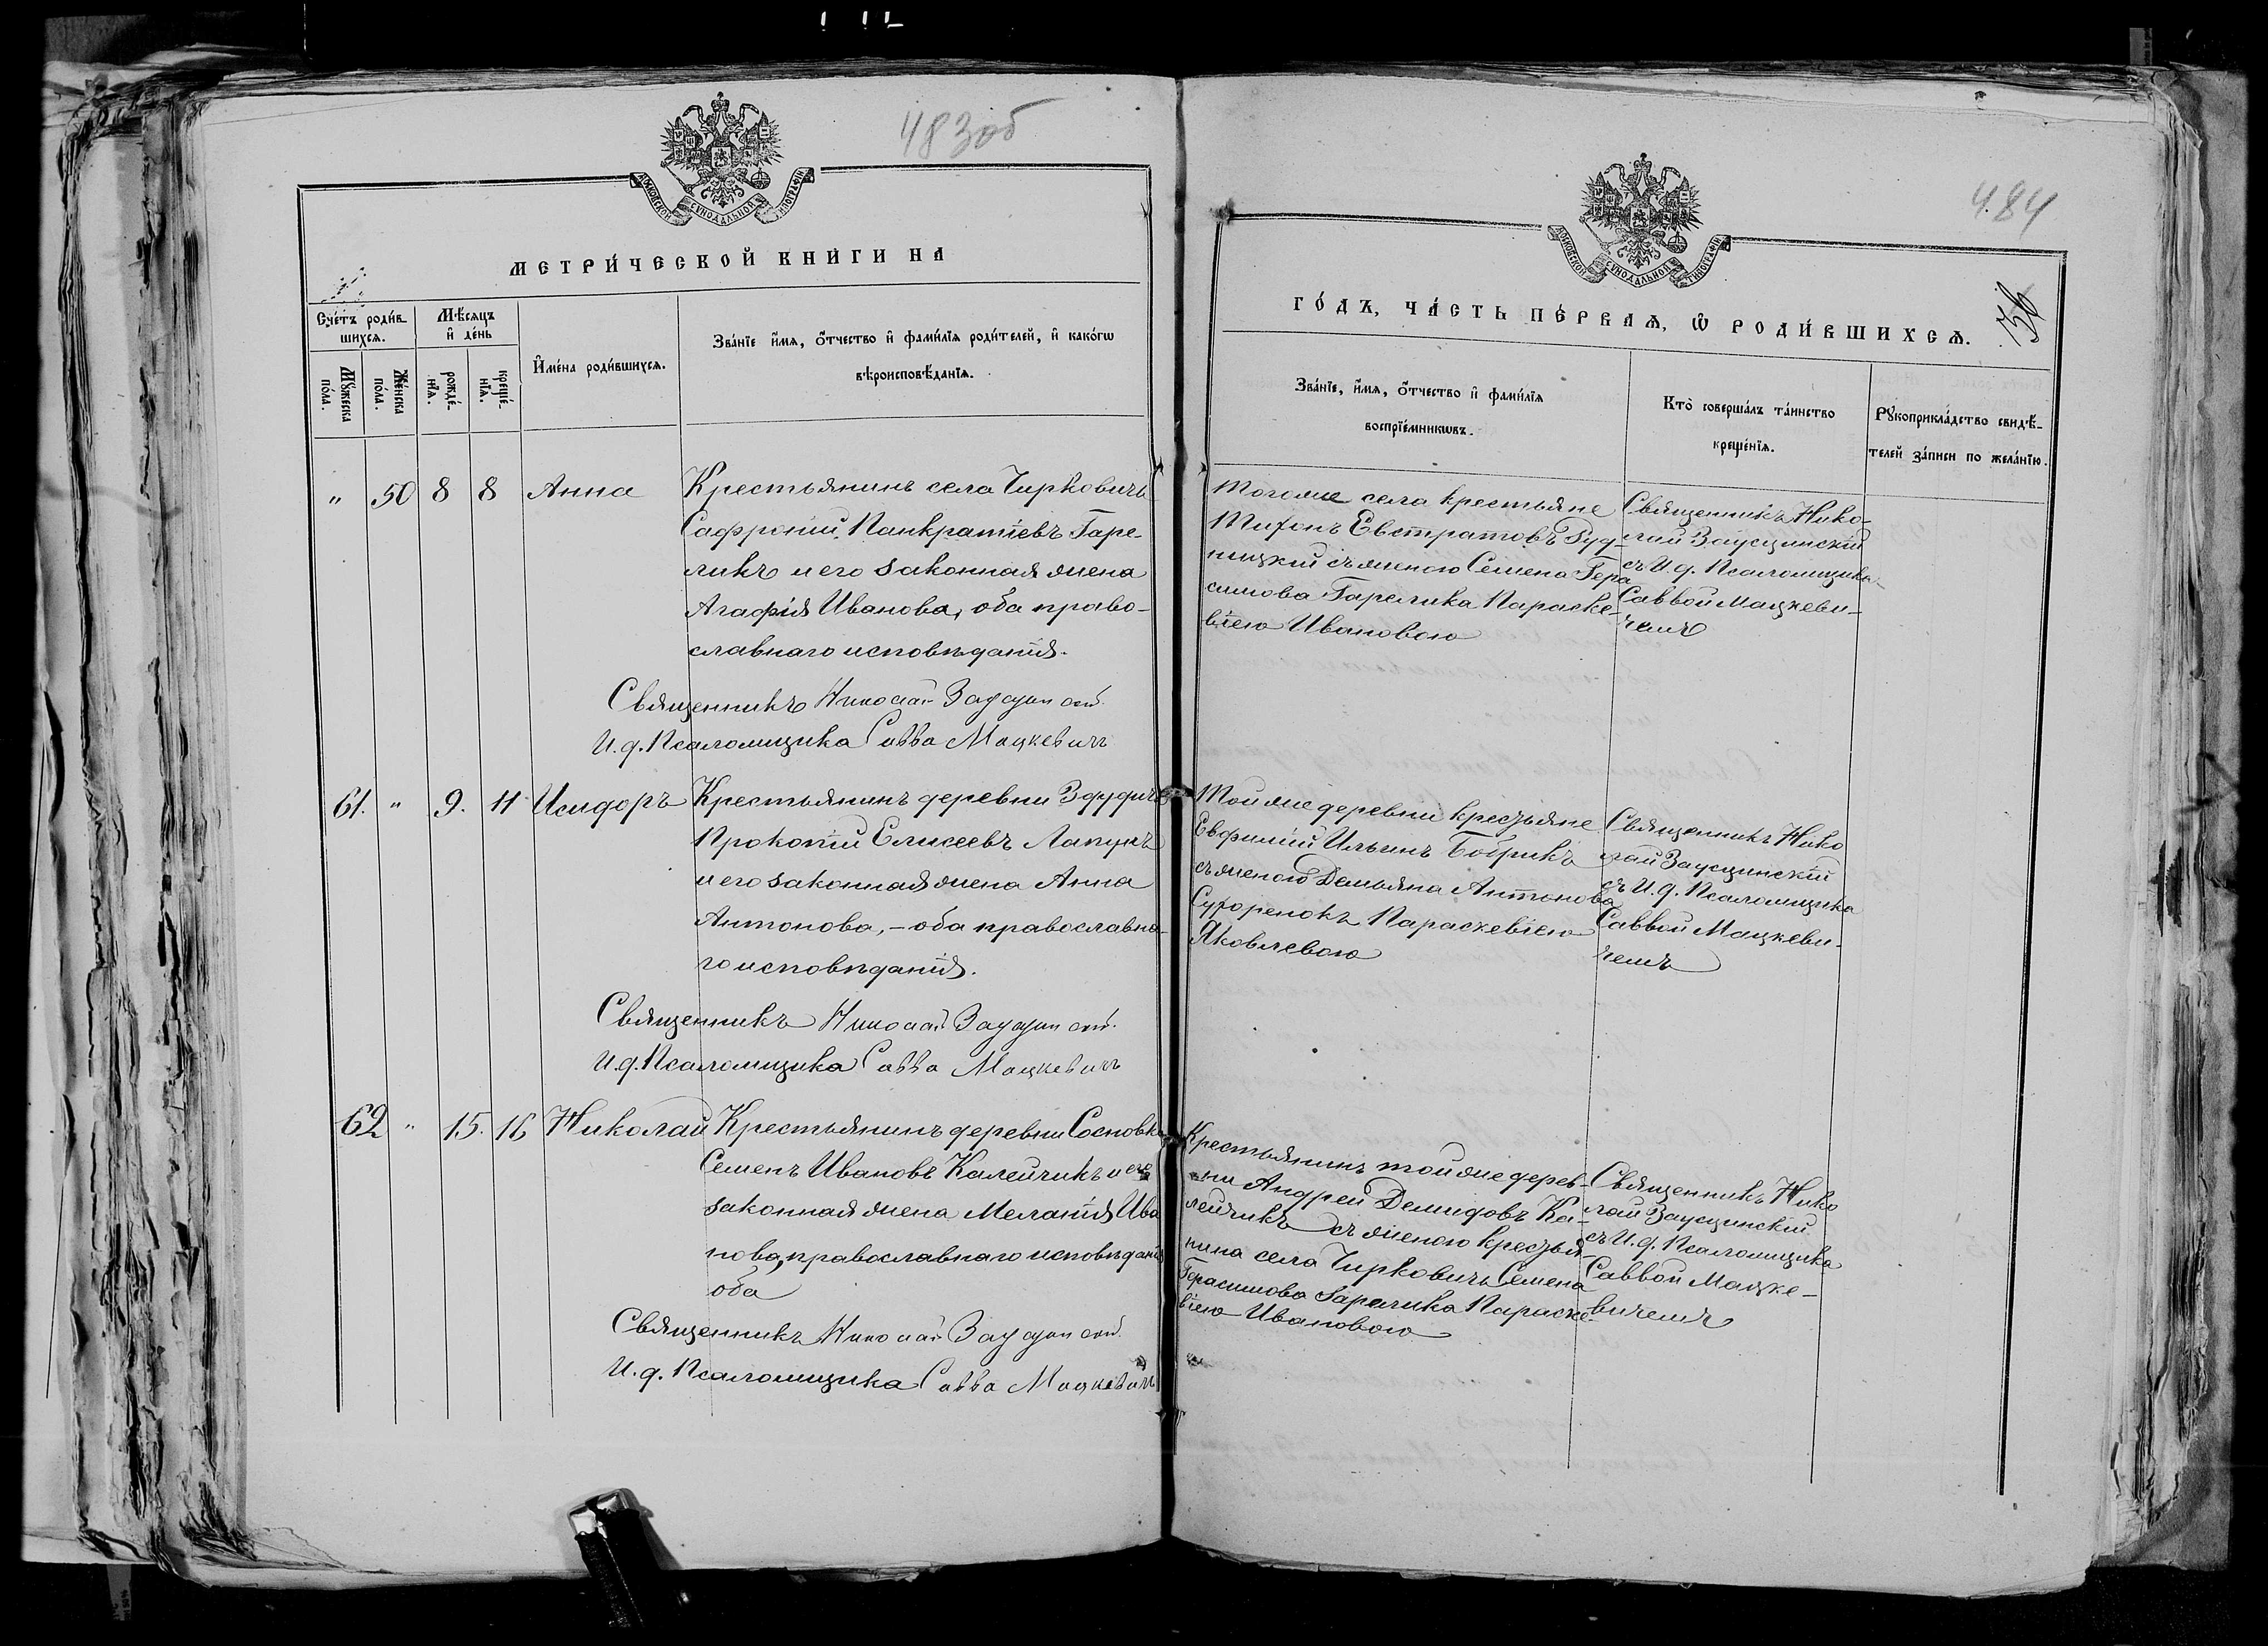 483об
МОСКОВСКОЙ СѴНОДАЛЬНОЙ ТИПОГРАФІИ
МЕТРИ́ЧЕСКОЙ КНИ́ГИ НА
Сче́тъ роди́в-
шихсѧ.
Мꙋ́жеска
по́ла.
Же́нска
по́ла.
Мѣ́сѧцъ
и҆ де́нь
рожде́-
нїѧ.
креще́-
нїѧ.
И҆мена̀ роди́вшихсѧ.
Зва́нїе и҆́мѧ, ѻ҆́тчество и҆ фами́лїѧ роди́телей, и҆ како́гѡ
вѣроисповѣ́данїѧ.
" 50 8 8 Анна
Крестьянинъ села Чирковичъ
Сафроній Панкратіевъ Гаре-
ликъ и его законная жена
Агафія Иванова, оба право-
славнаго исповѣданія.
Священникъ Николай Заусцинскій
И.д. Псаломщика Савва Мацкевичъ
61. " 9. 11 Исидоръ
Крестьянинъ деревни Здудичъ
Прокопій Елисеевъ Лапунъ
и его законная жена Анна
Антонова, - оба православна-
го исповѣданія.
Священникъ Николай Заусцинскій
И.д. Псаломщика Савва Мацкевичъ
62 " 15. 16 Николай
Крестьянинъ деревни Сосновка
Семенъ Ивановъ Калейчикъ и его
законная жена Меланія Ива
нова, православнаго исповѣданія
оба
Священникъ Николай Заусцинскій
И.д. Псаломщика Савва Мацкевичъ
484
МОСКОВСКОЙ СѴНОДАЛЬНОЙ ТИПОГРАФІИ
36
ГО́ДЪ, ЧА́СТЬ ПЕ́РВАѦ, Ѡ҆ РОДИ́ВШИХСѦ.
Зва́нїе, и҆́мѧ, ѻ҆́тчество и҆ фами́лїѧ
воспрїе́мникѡвъ.
Кто̀ соверша́лъ та́инство
креще́нїѧ.
Рꙋкоприкла́дство свидѣ́-
телей за́писи по жела́нїю.
Тогоже села крестьяне
Тихонъ Евстратовъ Буд-
ницкій съ женою Семена Гера
симова Гарелика Параске-
віею Ивановою
Священникъ Нико-
лай Заусцинскій
съ И.д. Псаломщика
Саввой Мацкеви-
чемъ
Тойже деревни крестьяне
Евфимій Ильинъ Бобрикъ
съ женою Демьяна Антонова
Сухоренокъ Параскевіею
Яковлевою
Священникъ Нико
лай Заусцинскій
съ И.д. Псаломщика
Саввой Мацкеви-
чемъ
Крестьянинъ тойже дерев-
ни Андрей Демидовъ Ка-
лейчикъ съ женою крестья-
нина села Чирковичъ Семена
Герасимова Гарелика Параске-
віею Ивановою
Священникъ Нико
лай Заусцинскій
съ И.д. Псаломщика
Саввой Мацке-
вичемъ